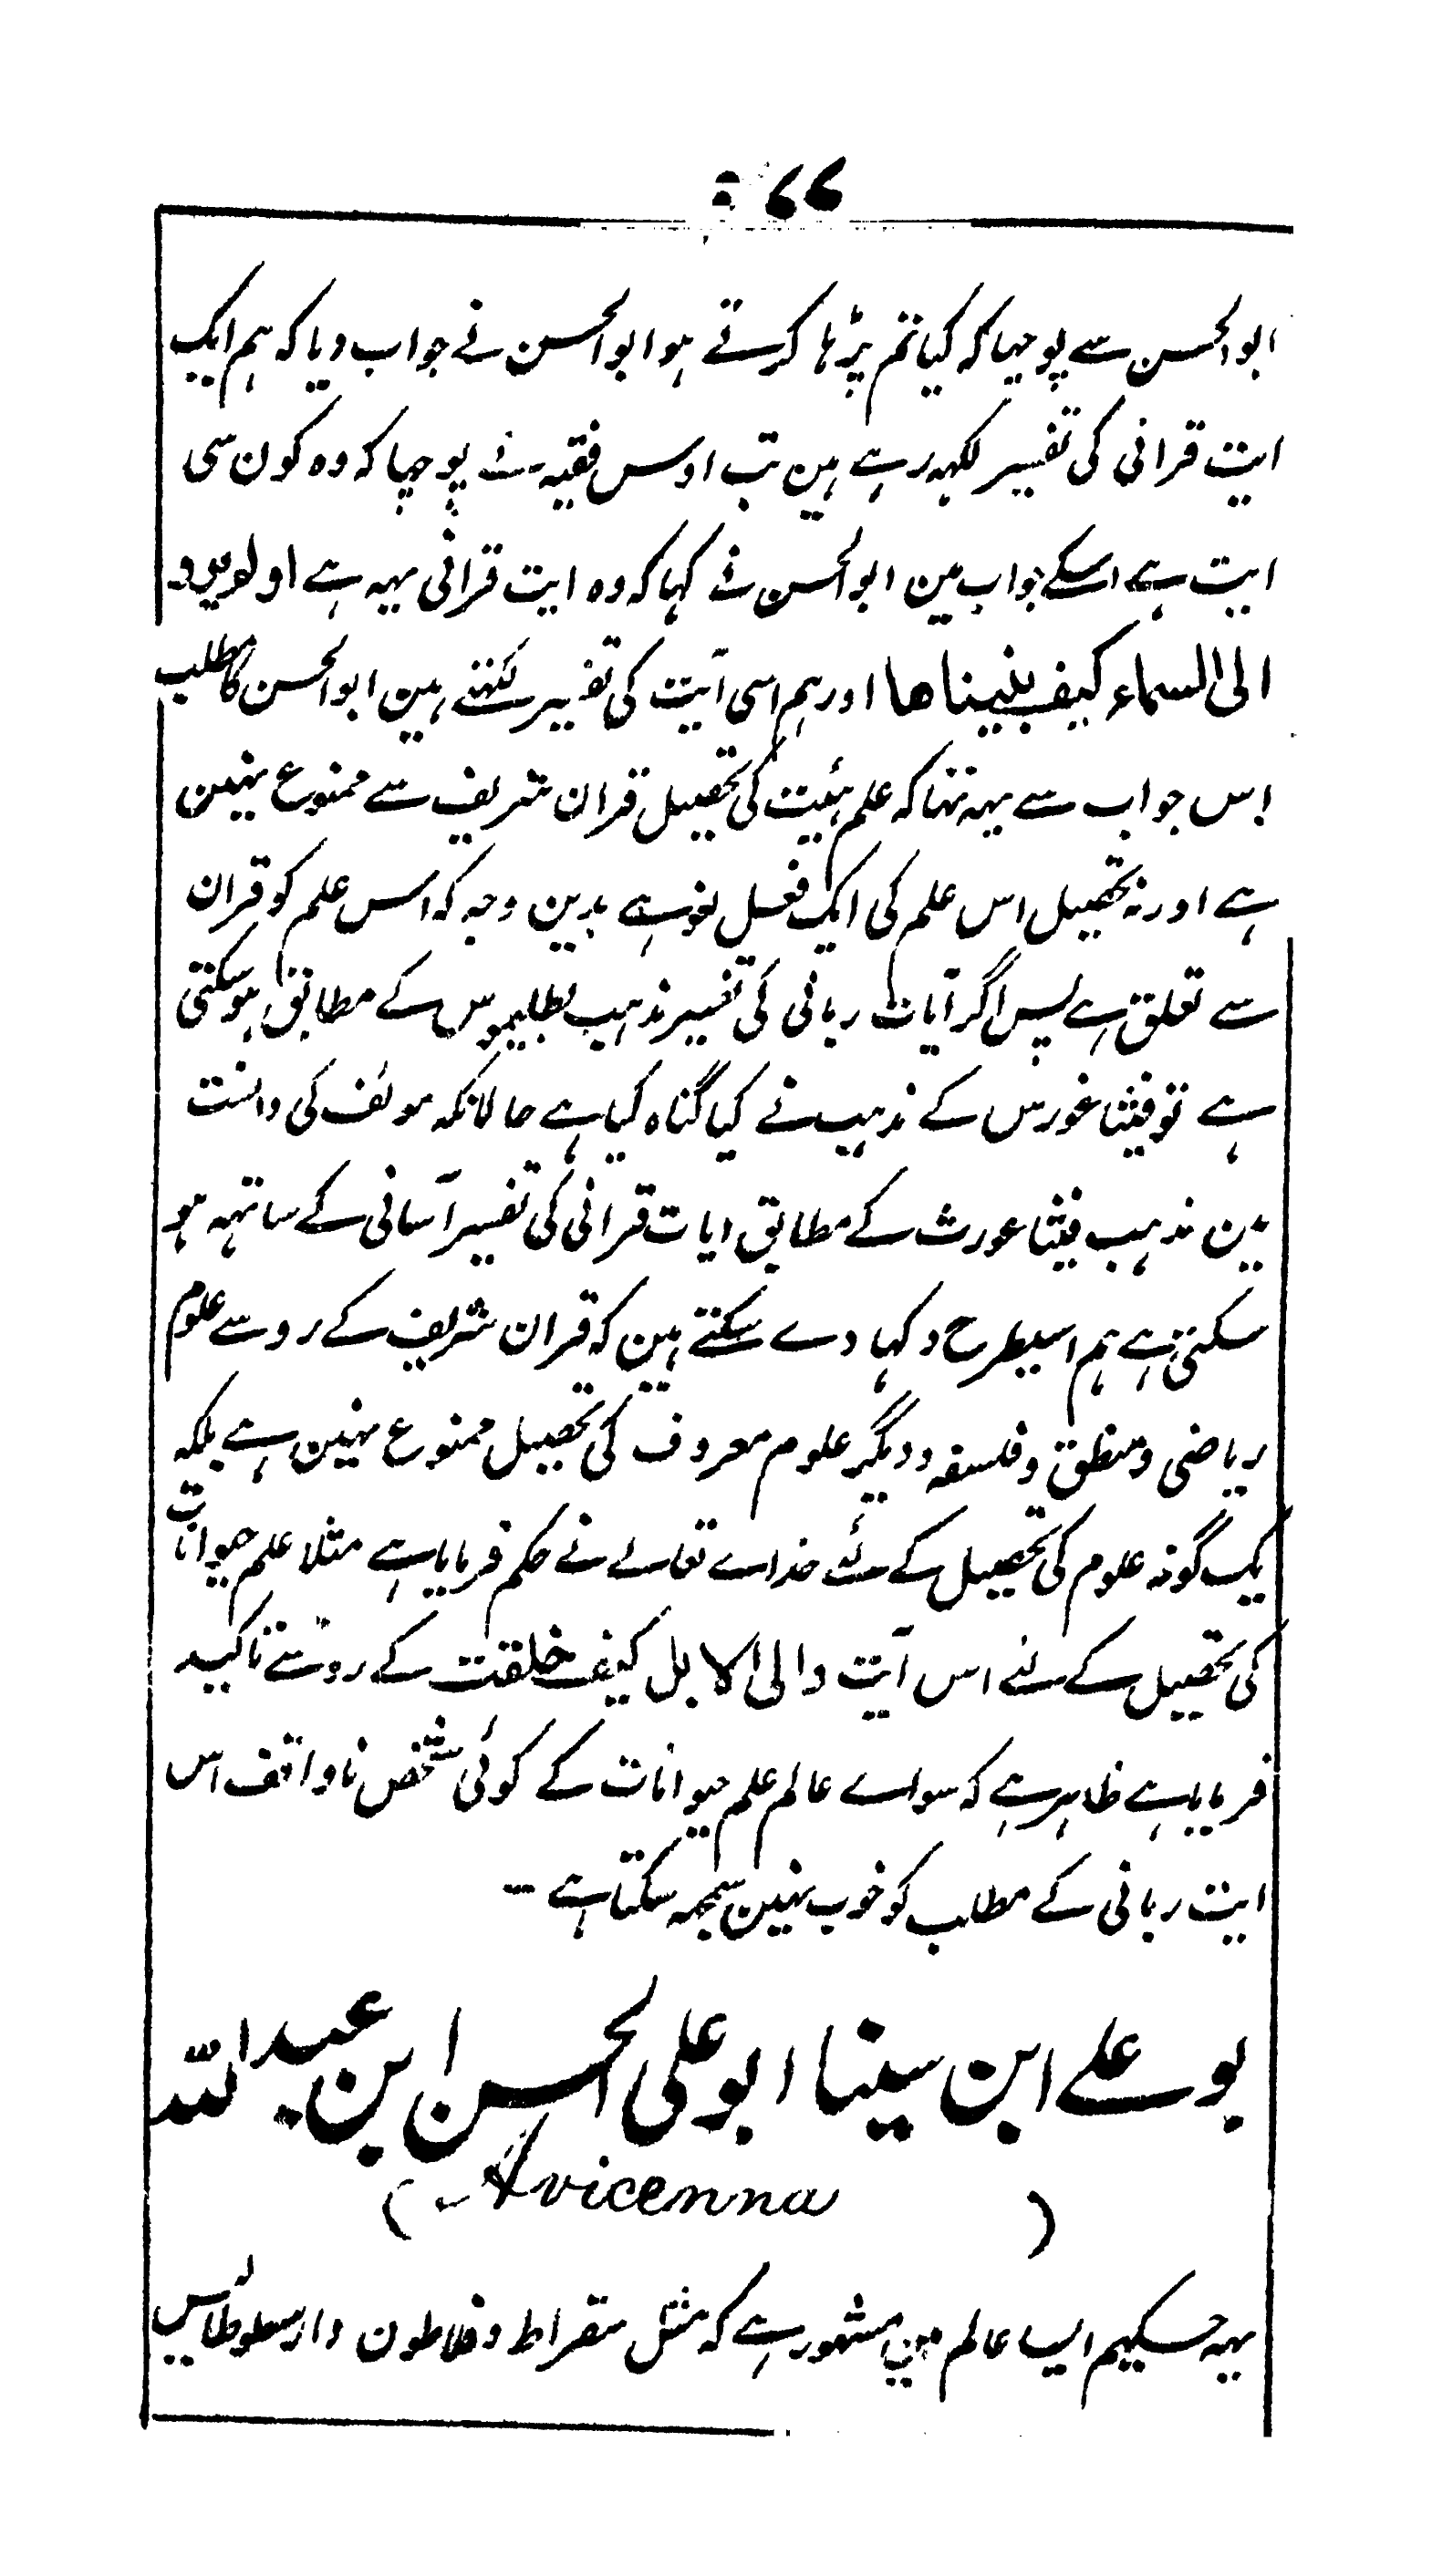 ابوالحسن سے پوچہا کہ کیا تم پڑہا کرتے ہو ابوالحسن نے جواب دیا کہ ہم ایک
ایت قرانی کی تفسیر لکہہ رہے ہین تب اوس فقیہ نے پوچہا کہ وہ کون سی
ایت ہے اسکے جواب مین ابوالحسن نے کہا کہ وہ ایت قرانی یہہ ہے اولویرو
الی السماء کیف بنیناها اور ہم اسی آیت کی تفسیر لکہتے ہین ابوالحسن کا مطلب
اس جواب سے یہہ تہا کہ علم ہئیت کی تحصیل قران شریف سے ممنوع نہین
ہے اور نہ تحصیل اس علم کی ایک فعل لغو ہے بدین وجہ کہ اس علم کو قران
سے تعلق ہے پس اگر آیات ربانی کی تفسیر مذہب بطلیموس کے مطابق ہوسکتی
ہے تو فیثاغورس کے مذہب نے کیا گناہ کیا ہے حالانکہ مولف کی دانست
مین مذہب فیثاغورث کے مطابق ایات قرانی کی تفسیر آسانی کے ساتہہ ہو
سکتی ہے ہم اسیطرح دکہا دے سکتے ہین کہ قران شریف کے رو سے علوم
ریاضی و منطق و فلسفہ و دیگر علوم معروف کی تحصیل ممنوع نہین ہے بلکہ
یک گونہ علوم کی تحصیل کے لئے خداے تعالے نے حکم فرمایا ہے مثلا علم حیوانات
کی تحصیل کے لئے اس آیت والی الابل کیف خلقت کے رو سے تاکید
فرمایا ہے ظاہر ہے کہ سواے عالم علم حیوانات کے کوئی شخص ناواقف اس
ایت ربانی کے مطلب کو خوب نہین سمجہہ سکتا ہے -
بو علے ابن سینا ابو علی الحسن ابن عبد اللہ
( Avicenna )
یہہ حکیم ایسا عالم مین مشہور ہے کہ مثل سقراط و فلاطون و ارسطوطالیس